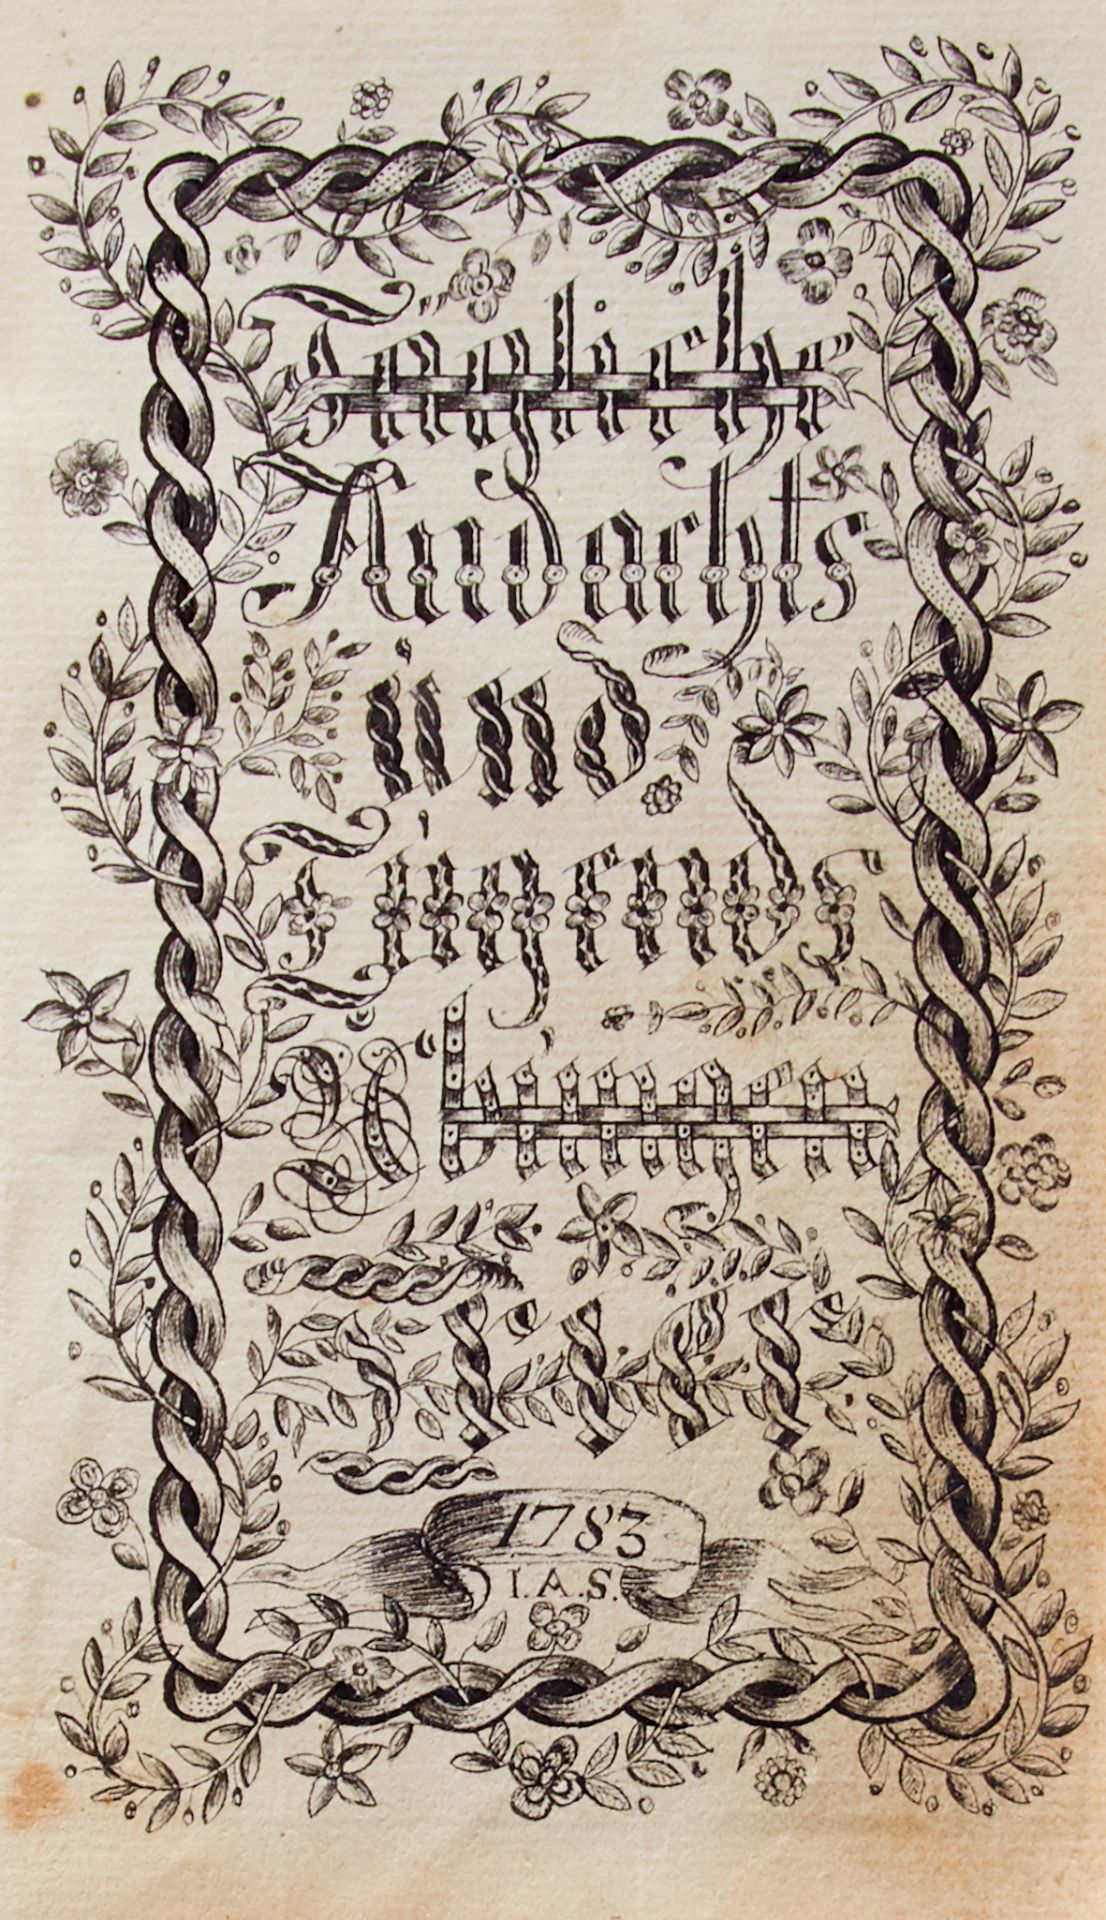 Tägliche
Andachts
und
Tugends
Übungen
1783
I.A.S.